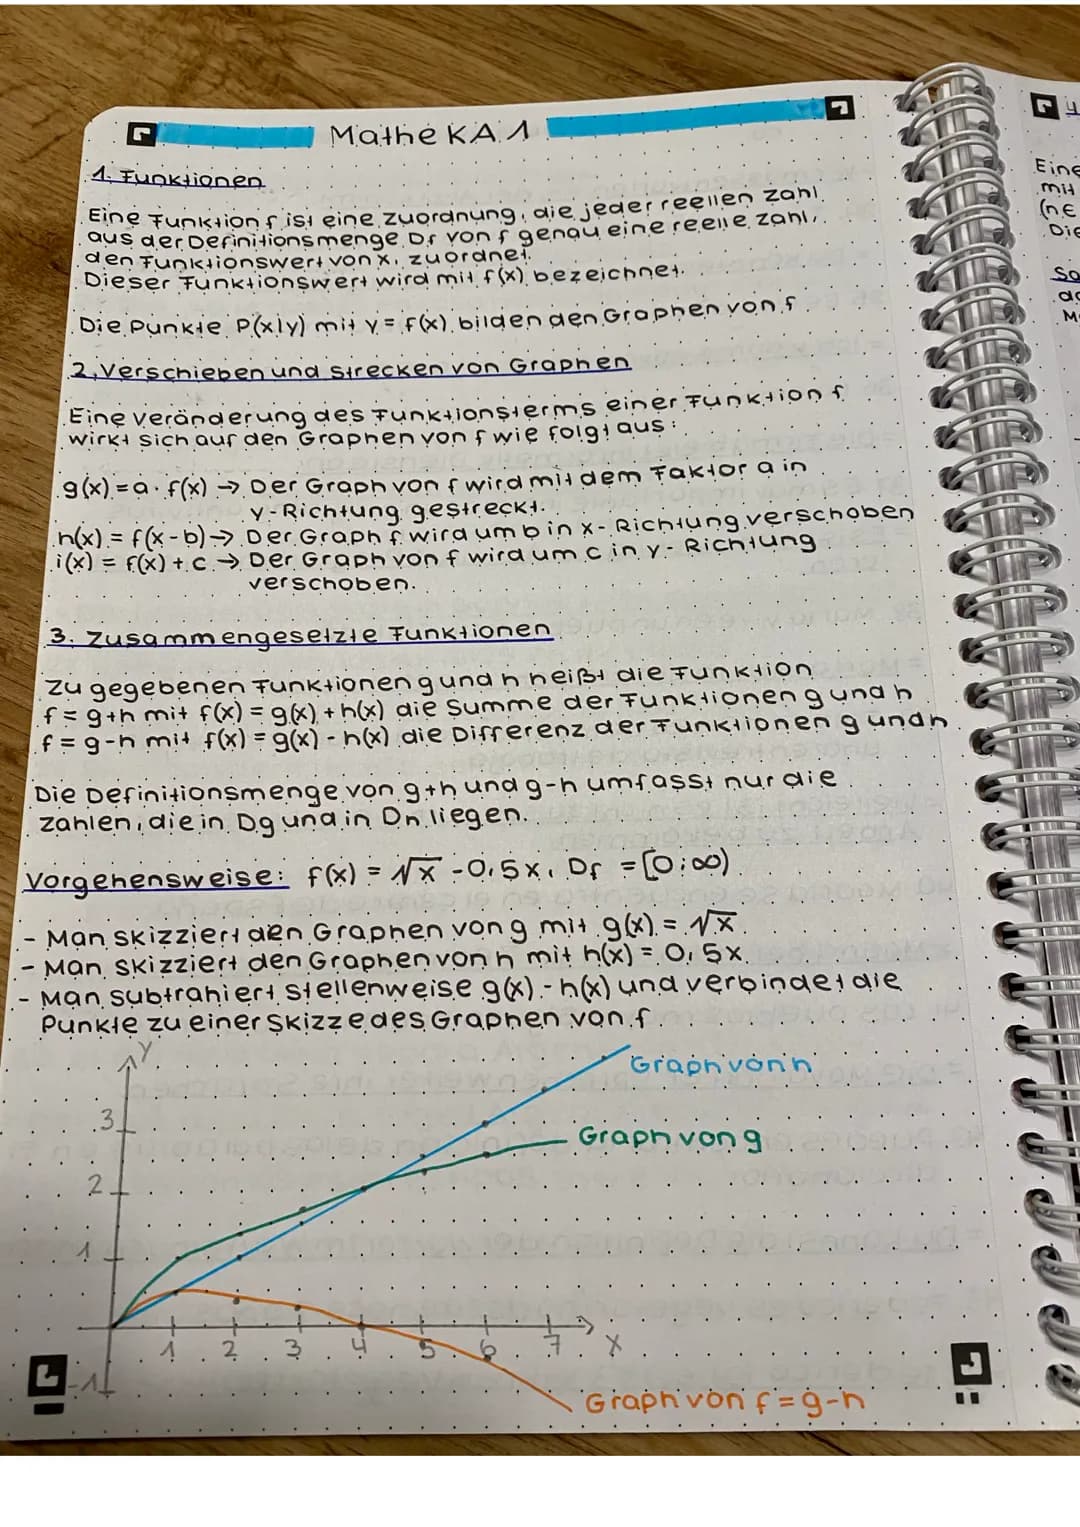 Mathe KA 1
1. Funktionen
Eine Funktion f ist eine Zuordnung, die jeder reellen Zahl
aus der Definitionsmenge Df von f genau eine reelle Zahl,
den Funktionswert von x, zuordnet.
Dieser Funktionswert wird mit f(x) bezeichnet.
Die Punkte P(x|y) mit y = f(x) bilden den Graphen von f.
2. Verschieben und strecken von Graphen
Eine Veränderung des Funktionsterms einer Funktion f
wirkt sich auf den Graphen von f wie folgt aus:
g(x) = a · f(x) → Der Graph von f wird mit dem Faktor a in
y-Richtung gestreckt.
h(x) = f(x-b) → Der Graph f wird um b in x-Richtung verschoben
i(x) = f(x) + c → Der Graph von f wird um c in y-Richtung
verschoben.
3. Zusammengesetzte Funktionen
Zu gegebenen Funktionen g und h heißt die Funktion
f = g+h mit f(x) = g(x) + h(x) die Summe der Funktionen g und h
f = g-h mit f(x) = g(x) - h(x) die Differenz der Funktionen g und h.
Die Definitionsmenge von g+h und g-h umfasst nur die
Zahlen, die in Dg und in Dh liegen.
Vorgehensweise: f(x) = √x - 0,5x, Df = [0;∞)
- Man skizziert den Graphen von g mit g(x) = √x.
- Man skizziert den Graphen von h mit h(x) = 0,5x.
- Man subtrahiert stellenweise g(x) - h(x) und verbindet die
Punkte zu einer Skizze des Graphen von f.
y
Graph von h
3
Graph von g
2
1
1 2 3 4 5 6 7 x
-1
Graph von f = g-h
Eine
mit
(ne
Die
So